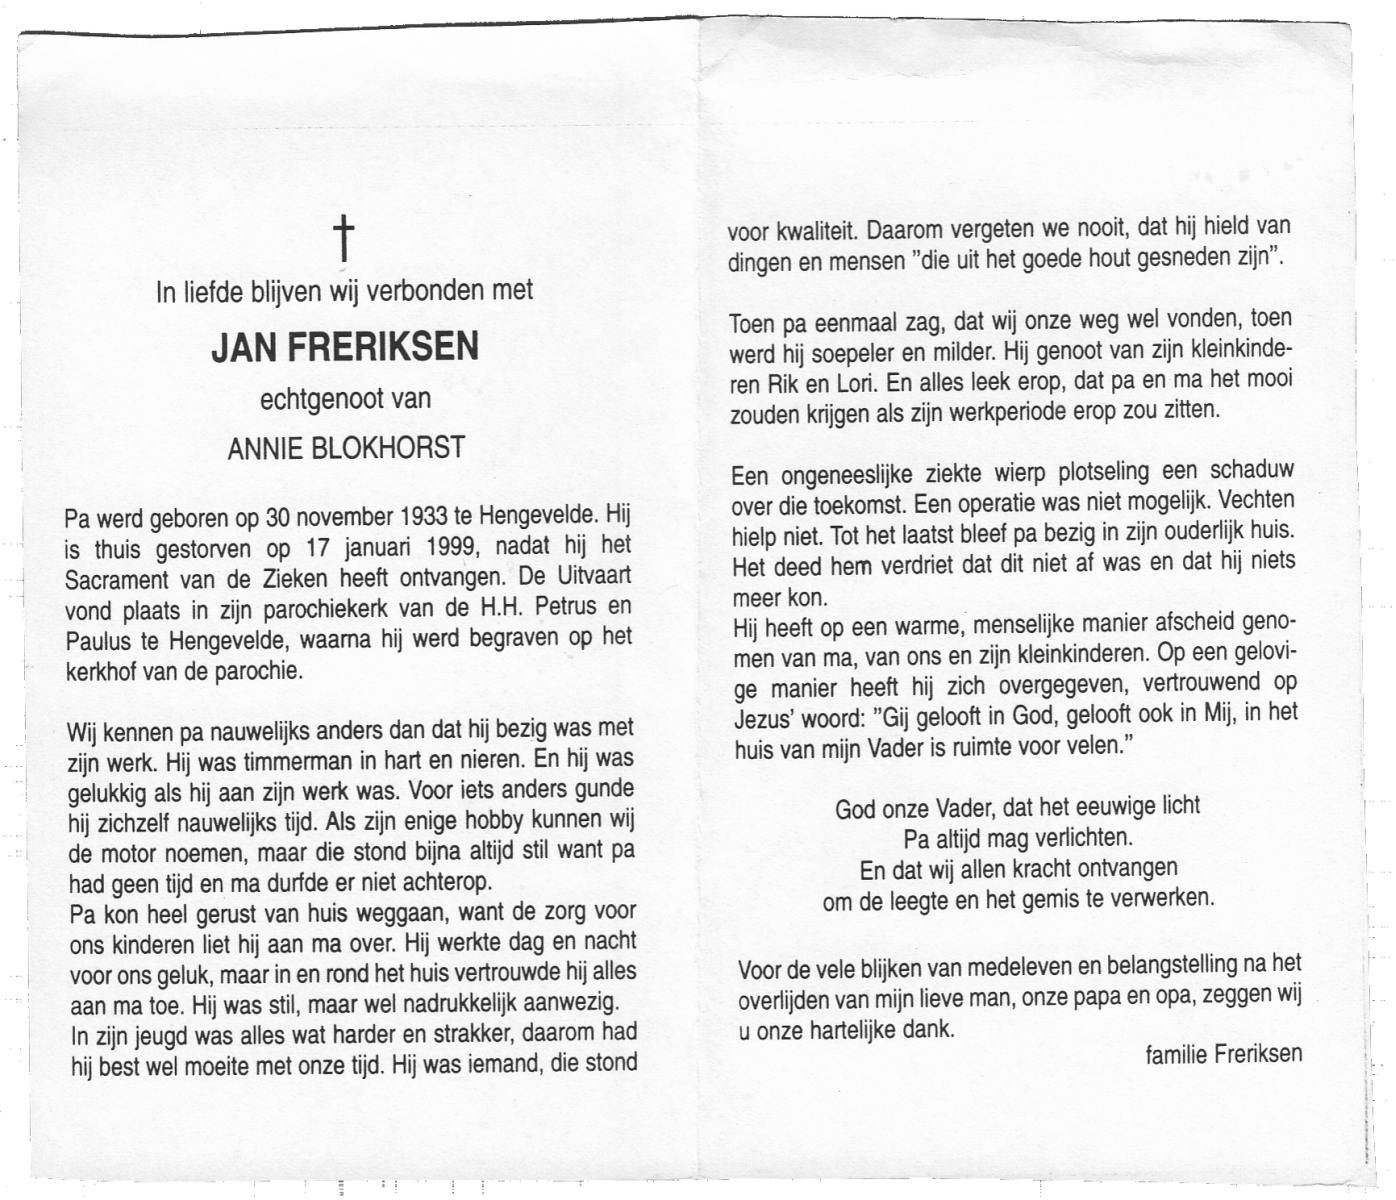 In liefde blijven wij verbonden met
JAN FRERIKSEN
echtgenoot van
ANNIE BLOKHORST
Pa werd geboren op 30 november 1933 te Hengevelde. Hij
is thuis gestorven op 17 januari 1999, nadat hij het
Sacrament van de Zieken heeft ontvangen. De Uitvaart
vond plaats in zijn parochiekerk van de H.H. Petrus en
Paulus te Hengevelde, waarna hij werd begraven op het
kerkhof van de parochie.
Wij kennen pa nauwelijks anders dan dat hij bezig was met
zijn werk. Hij was timmerman in hart en nieren. En hij was
gelukkig als hij aan zijn werk was. Voor iets anders gunde
hij zichzelf nauwelijks tijd. Als zijn enige hobby kunnen wij
de motor noemen, maar die stond bijna altijd stil want pa
had geen tijd en ma durfde er niet achterop.
Pa kon heel gerust van huis weggaan, want de zorg voor
ons kinderen liet hij aan ma over. Hij werkte dag en nacht
voor ons geluk, maar in en rond het huis vertrouwde hij alles
aan ma toe. Hij was stil, maar wel nadrukkelijk aanwezig.
In zijn jeugd was alles wat harder en strakker, daarom had
hij best wel moeite met onze tijd. Hij was iemand, die stond
voor kwaliteit. Daarom vergeten we nooit, dat hij hield van
dingen en mensen "die uit het goede hout gesneden zijn".
Toen pa eenmaal zag, dat wij onze weg wel vonden, toen
werd hij soepeler en milder. Hij genoot van zijn kleinkinde-
ren Rik en Lori. En alles leek erop, dat pa en ma het mooi
zouden krijgen als zijn werkperiode erop zou zitten.
Een ongeneeslijke ziekte wierp plotseling een schaduw
over die toekomst. Een operatie was niet mogelijk. Vechten
hielp niet. Tot het laatst bleef pa bezig in zijn ouderlijk huis.
Het deed hem verdriet dat dit niet af was en dat hij niets
meer kon.
Hij heeft op een warme, menselijke manier afscheid geno-
men van ma, van ons en zijn kleinkinderen. Op een gelovi-
ge manier heeft hij zich overgegeven, vertrouwend op
Jezus' woord: "Gij gelooft in God, gelooft ook in Mij, in het
huis van mijn Vader is ruimte voor velen."
God onze Vader, dat het eeuwige licht
Pa altijd mag verlichten.
En dat wij allen kracht ontvangen
om de leegte en het gemis te verwerken.
Voor de vele blijken van medeleven en belangstelling na het
overlijden van mijn lieve man, onze papa en opa, zeggen wij
u onze hartelijke dank.
familie Freriksen